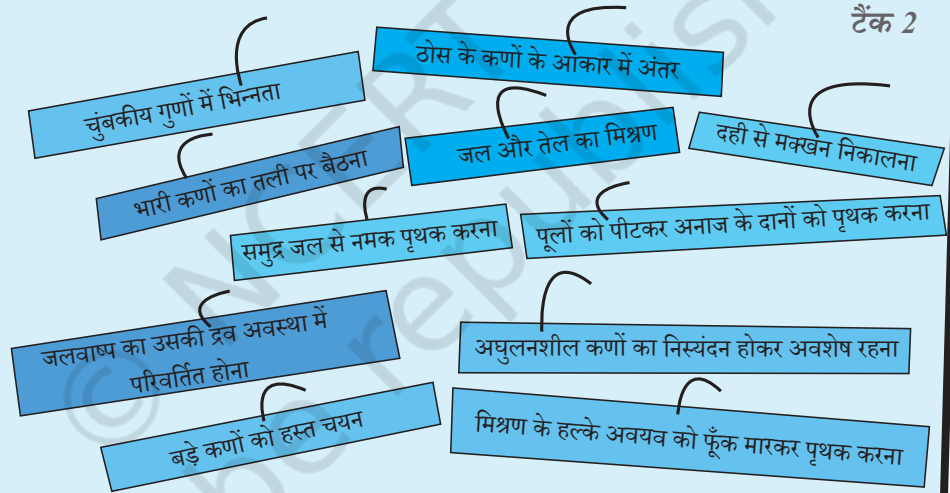 टैंक 2
ठोस के कणों के आकार में अंतर
चुंबकीय गुणों में भिन्नता
जल और तेल का मिश्रण
दही से मक्खन निकालना
भारी कणों का तली पर बैठना
समुद्र जल से नमक पृथक करना
पूलों को पीटकर अनाज के दानों को पृथक करना
जलवाष्प का उसकी द्रव अवस्था में
परिवर्तित होना
अघुलनशील कणों का निस्यंदन होकर अवशेष रहना
बड़े कणों को हस्त चयन
मिश्रण के हल्के अवयव को फूँक मारकर पृथक करना
© NCERT
be republish